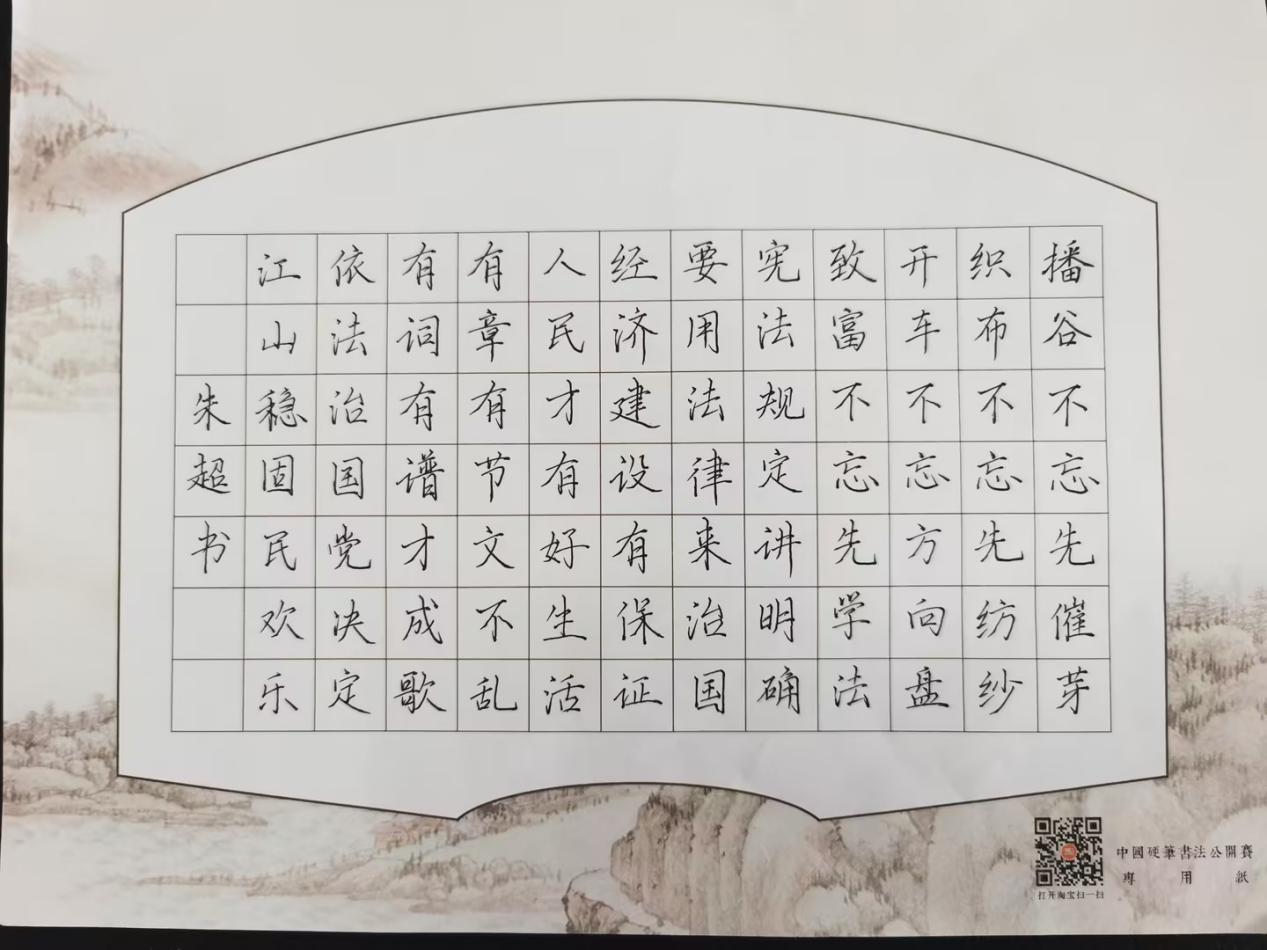 播谷不忘先催芽
织布不忘先纺纱
开车不忘方向盘
致富不忘先学法
宪法规定讲明确
要用法律来治国
经济建设有保证
人民才有好生活
有章有节文不乱
有词有谱才成歌
依法治国党决定
江山稳固民欢乐
朱超书
打开淘宝扫一扫
中國硬筆書法公開賽
專用紙